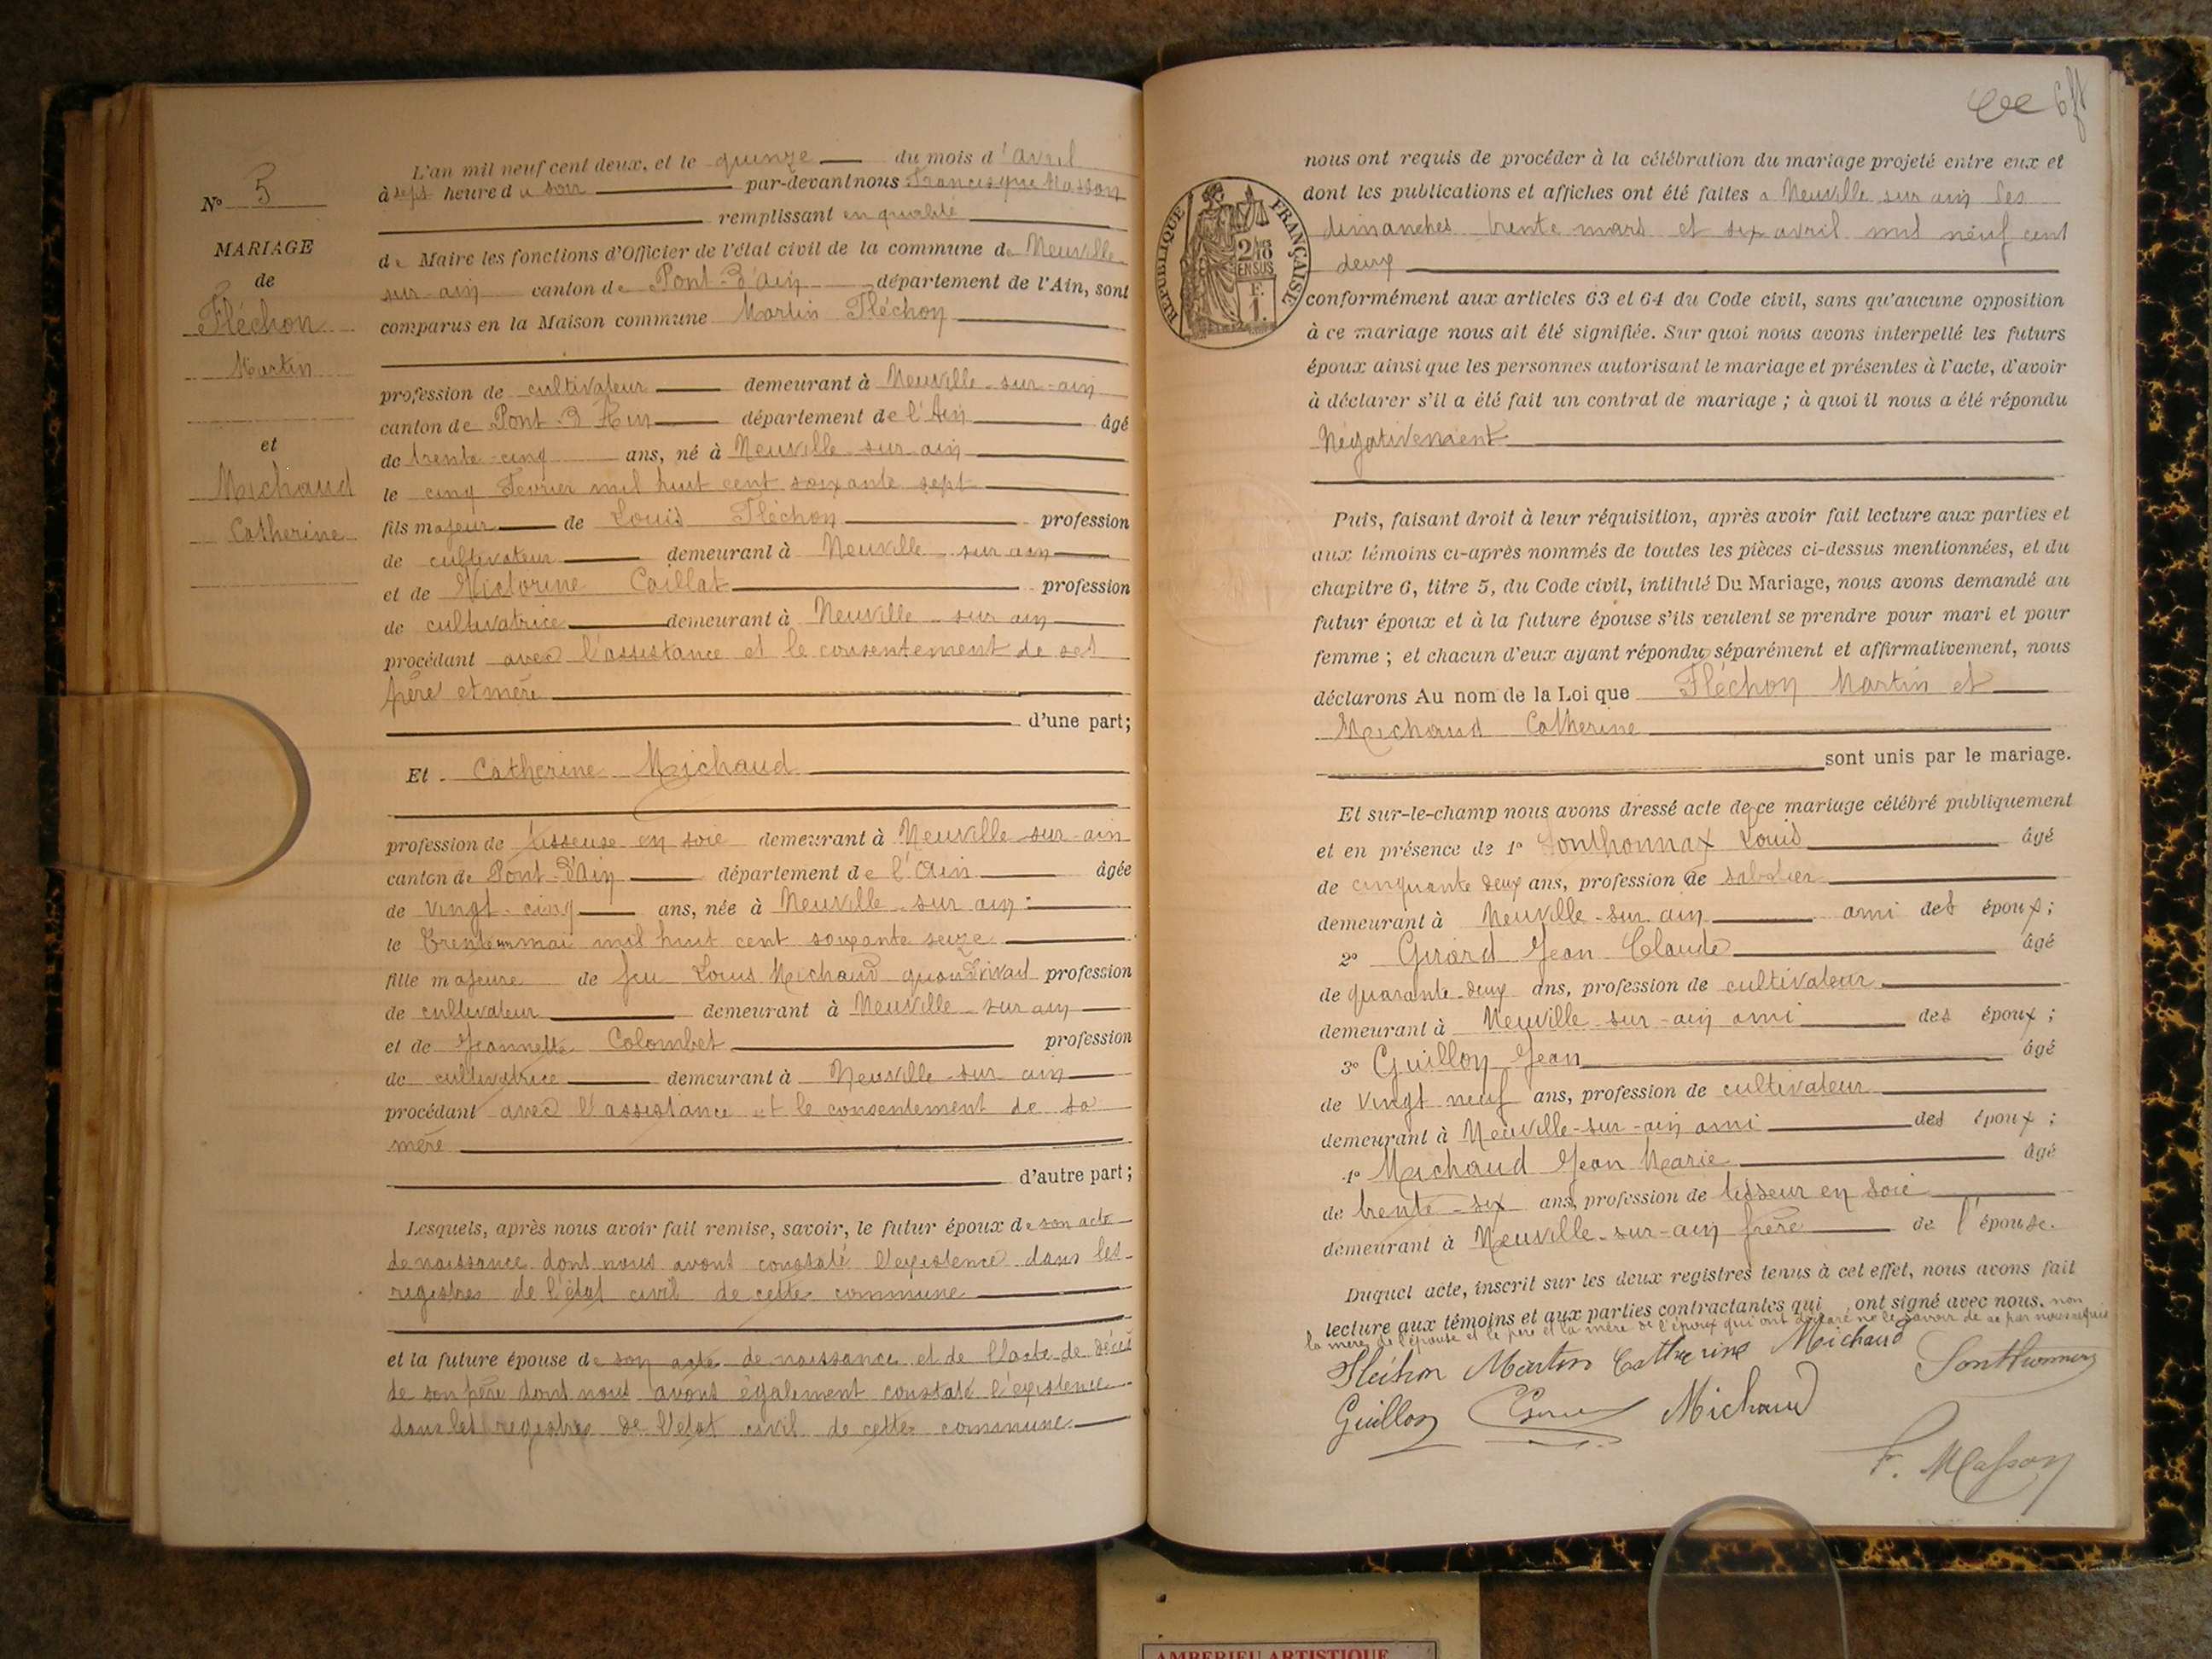 N° 5
MARIAGE
de
Fléchon
Martin
et
Michaud
Catherine
L'an mil neuf cent deux, et le quinze du mois d'avril
à sept heure du soir par-devant nous Francisque Masson
remplissant en qualité
de Maire les fonctions d'Officier de l'état civil de la commune de Neuville
sur-ain canton de Pont-d'Ain département de l'Ain, sont
comparus en la Maison commune Martin Fléchon
profession de cultivateur demeurant à Neuville-sur-ain
canton de Pont-d'Ain département de l'Ain âgé
de trente-cinq ans, né à Neuville sur ain
le cinq Fevrier mil huit cent soixante sept
fils majeur de Louis Fléchon profession
de cultivateur demeurant à Neuville sur ain
et de Victorine Caillat profession
de cultivatrice demeurant à Neuville sur ain
procédant avec l'assistance et le consentement de ses
père et mère
d'une part;
Et Catherine Michaud
profession de tisseuse en soie demeurant à Neuville-sur-ain
canton de Pont-d'Ain département de l'Ain âgée
de vingt-cinq ans, née à Neuville sur ain
le trente un mai mil huit cent soixante seize
fille majeure de feu Louis Michaud quand vivait profession
de cultivateur demeurant à Neuville sur ain
et de Jeannette Colombet profession
de cultivatrice demeurant à Neuville sur ain
procédant avec l'assistance et le consentement de sa
mère
d'autre part;
Lesquels, après nous avoir fait remise, savoir, le futur époux de son acte
de naissance dont nous avons constaté l'existence dans les
registres de l'état civil de cette commune
et la future épouse de son acte de naissance et de l'acte de décès
de son père dont nous avons également constaté l'existence
dans les registres de l'état civil de cette commune
nous ont requis de procéder à la célébration du mariage projeté entre eux et
dont les publications et affiches ont été faites à Neuville sur ain les
dimanches trente mars et six avril mil neuf cent
deux
RÉPUBLIQUE FRANÇAISE
2/10
EN SUS
F.
1.
conformément aux articles 63 et 64 du Code civil, sans qu'aucune opposition
à ce mariage nous ait été signifiée. Sur quoi nous avons interpellé les futurs
époux ainsi que les personnes autorisant le mariage et présentes à l'acte, d'avoir
à déclarer s'il a été fait un contrat de mariage ; à quoi il nous a été répondu
Négativement
Puis, faisant droit à leur réquisition, après avoir fait lecture aux parties et
aux témoins ci-après nommés de toutes les pièces ci-dessus mentionnées, et du
chapitre 6, titre 5, du Code civil, intitulé Du Mariage, nous avons demandé au
futur époux et à la future épouse s'ils veulent se prendre pour mari et pour
femme ; et chacun d'eux ayant répondu séparément et affirmativement, nous
déclarons Au nom de la Loi que Fléchon Martin et
Michaud Catherine
sont unis par le mariage.
Et sur-le-champ nous avons dressé acte de ce mariage célébré publiquement
et en présence de 1° Sonthonnax Louis âgé
de cinquante deux ans, profession de sabotier
demeurant à Neuville-sur-ain ami des époux;
2° Girard Jean Claude âgé
de quarante-deux ans, profession de cultivateur
demeurant à Neuville-sur-ain ami des époux ;
3° Guillon Jean âgé
de vingt neuf ans, profession de cultivateur
demeurant à Neuville-sur-ain ami des époux ;
4° Michaud Jean Marie âgé
de trente-six ans, profession de tisseur en soie
demeurant à Neuville-sur-ain frère de l'épouse.
Duquel acte, inscrit sur les deux registres tenus à cet effet, nous avons fait
lecture aux témoins et aux parties contractantes qui ont signé avec nous. non
la mère de l'épouse et le père et la mère de l'époux qui ont déclaré ne le savoir de ce par nous requis
Fléchon Martin Catherine Michaud Sonthonnax
Guillon Michaud
F. Masson
AMBERIEU ARTISTIQUE